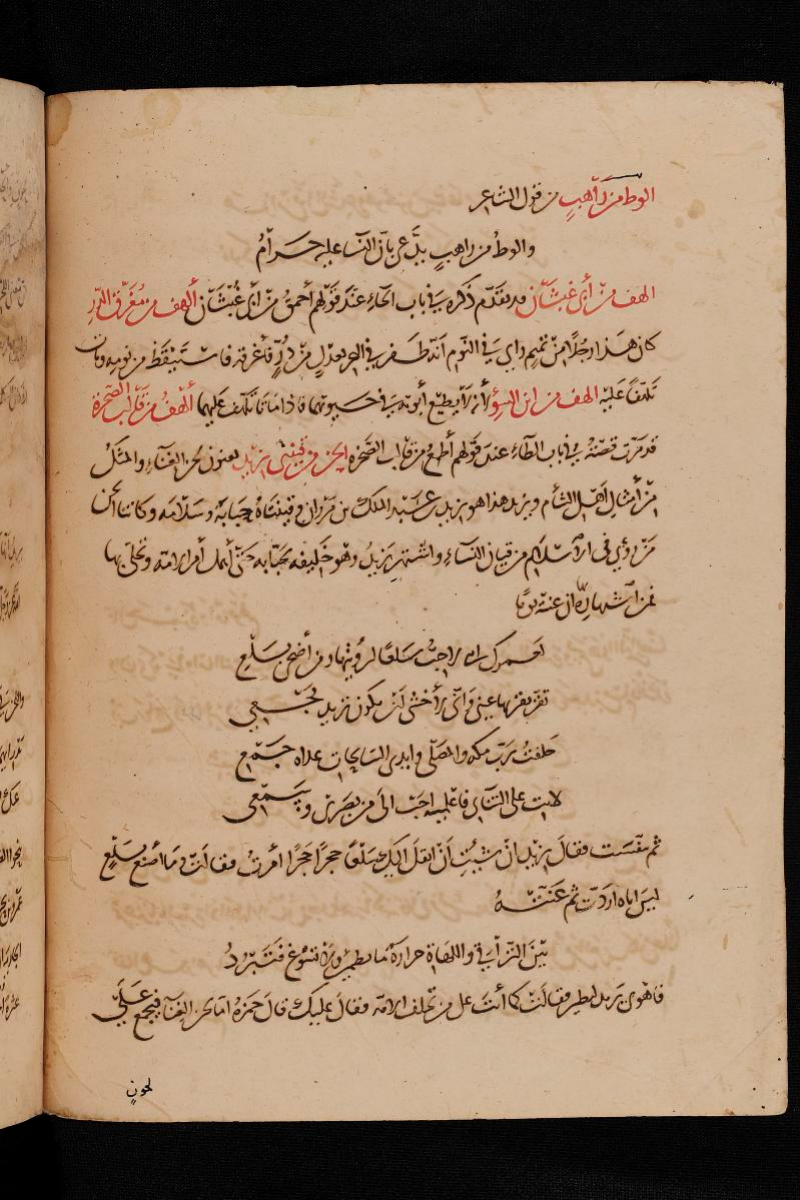 الوط من راهب من قول الشاعر
والوط من راهب يدّعي بأنّ النساء عليه حرام
الهف من أبي غبشان قد تقدّم ذكره في باب الحاء عند قولهم أحمق من أبي غبشان ألهف من مغرق الدر
كان هذا رجلا من تميم رأى في النوم أنه ظفر في البحر بعدل من در فأغرقه فاستيقظ من نومه ومات
تلهفا عليه الهف من ابن السوء لأنه لا يطيع أبويه في حيوتهما فاذا ماتا تلهف عليهما ألهف من قالب الصخرة
قد مرّت قصته في باب الطاء عند قولهم أطمع من قالب الصخرة الحن من قينتي يزيد يعنون لحن الغناء والمثل
من أمثال أهل الشأم ويزيد هذا هو يزيد بن عبد الملك بن مروان وقينتاه حبابة وسلامة وكانتا الحن
من رؤي في الاسلام من قيان النساء واشتهر يزيد وهو خليفة بحبابة حتى أهمل أمر الامة وتخلى بها
فمن اشتهاره أن غنته يوما
لعمرك انني لاحب سلعا لرؤيتها ومن أضحى بسلع
تقر بقربها عيني وانّي لأخشى أن يكون تريد فجعي
حلفت برب مكة والمصلى وايدي السابحات غداة جمع
لانت على التنائي فاعلميه احب الىّ من بصري وسمعي
ثم تنفست فقال يزيد ان شئت أن انقل اليك سلعا حجرا حجرا أمرت فقالت وما أصنع بسلع
ليس اياه اردت ثم غنته
بين التراقي واللهاة حرارة ما تطمئن ولا تسوغ فتبرد
فاهوى يزيد ليطير فقالت كما أنت على من تخلف الامة فقال عليك قال حمزة اما لحن الغناء فيجمع على
لحون